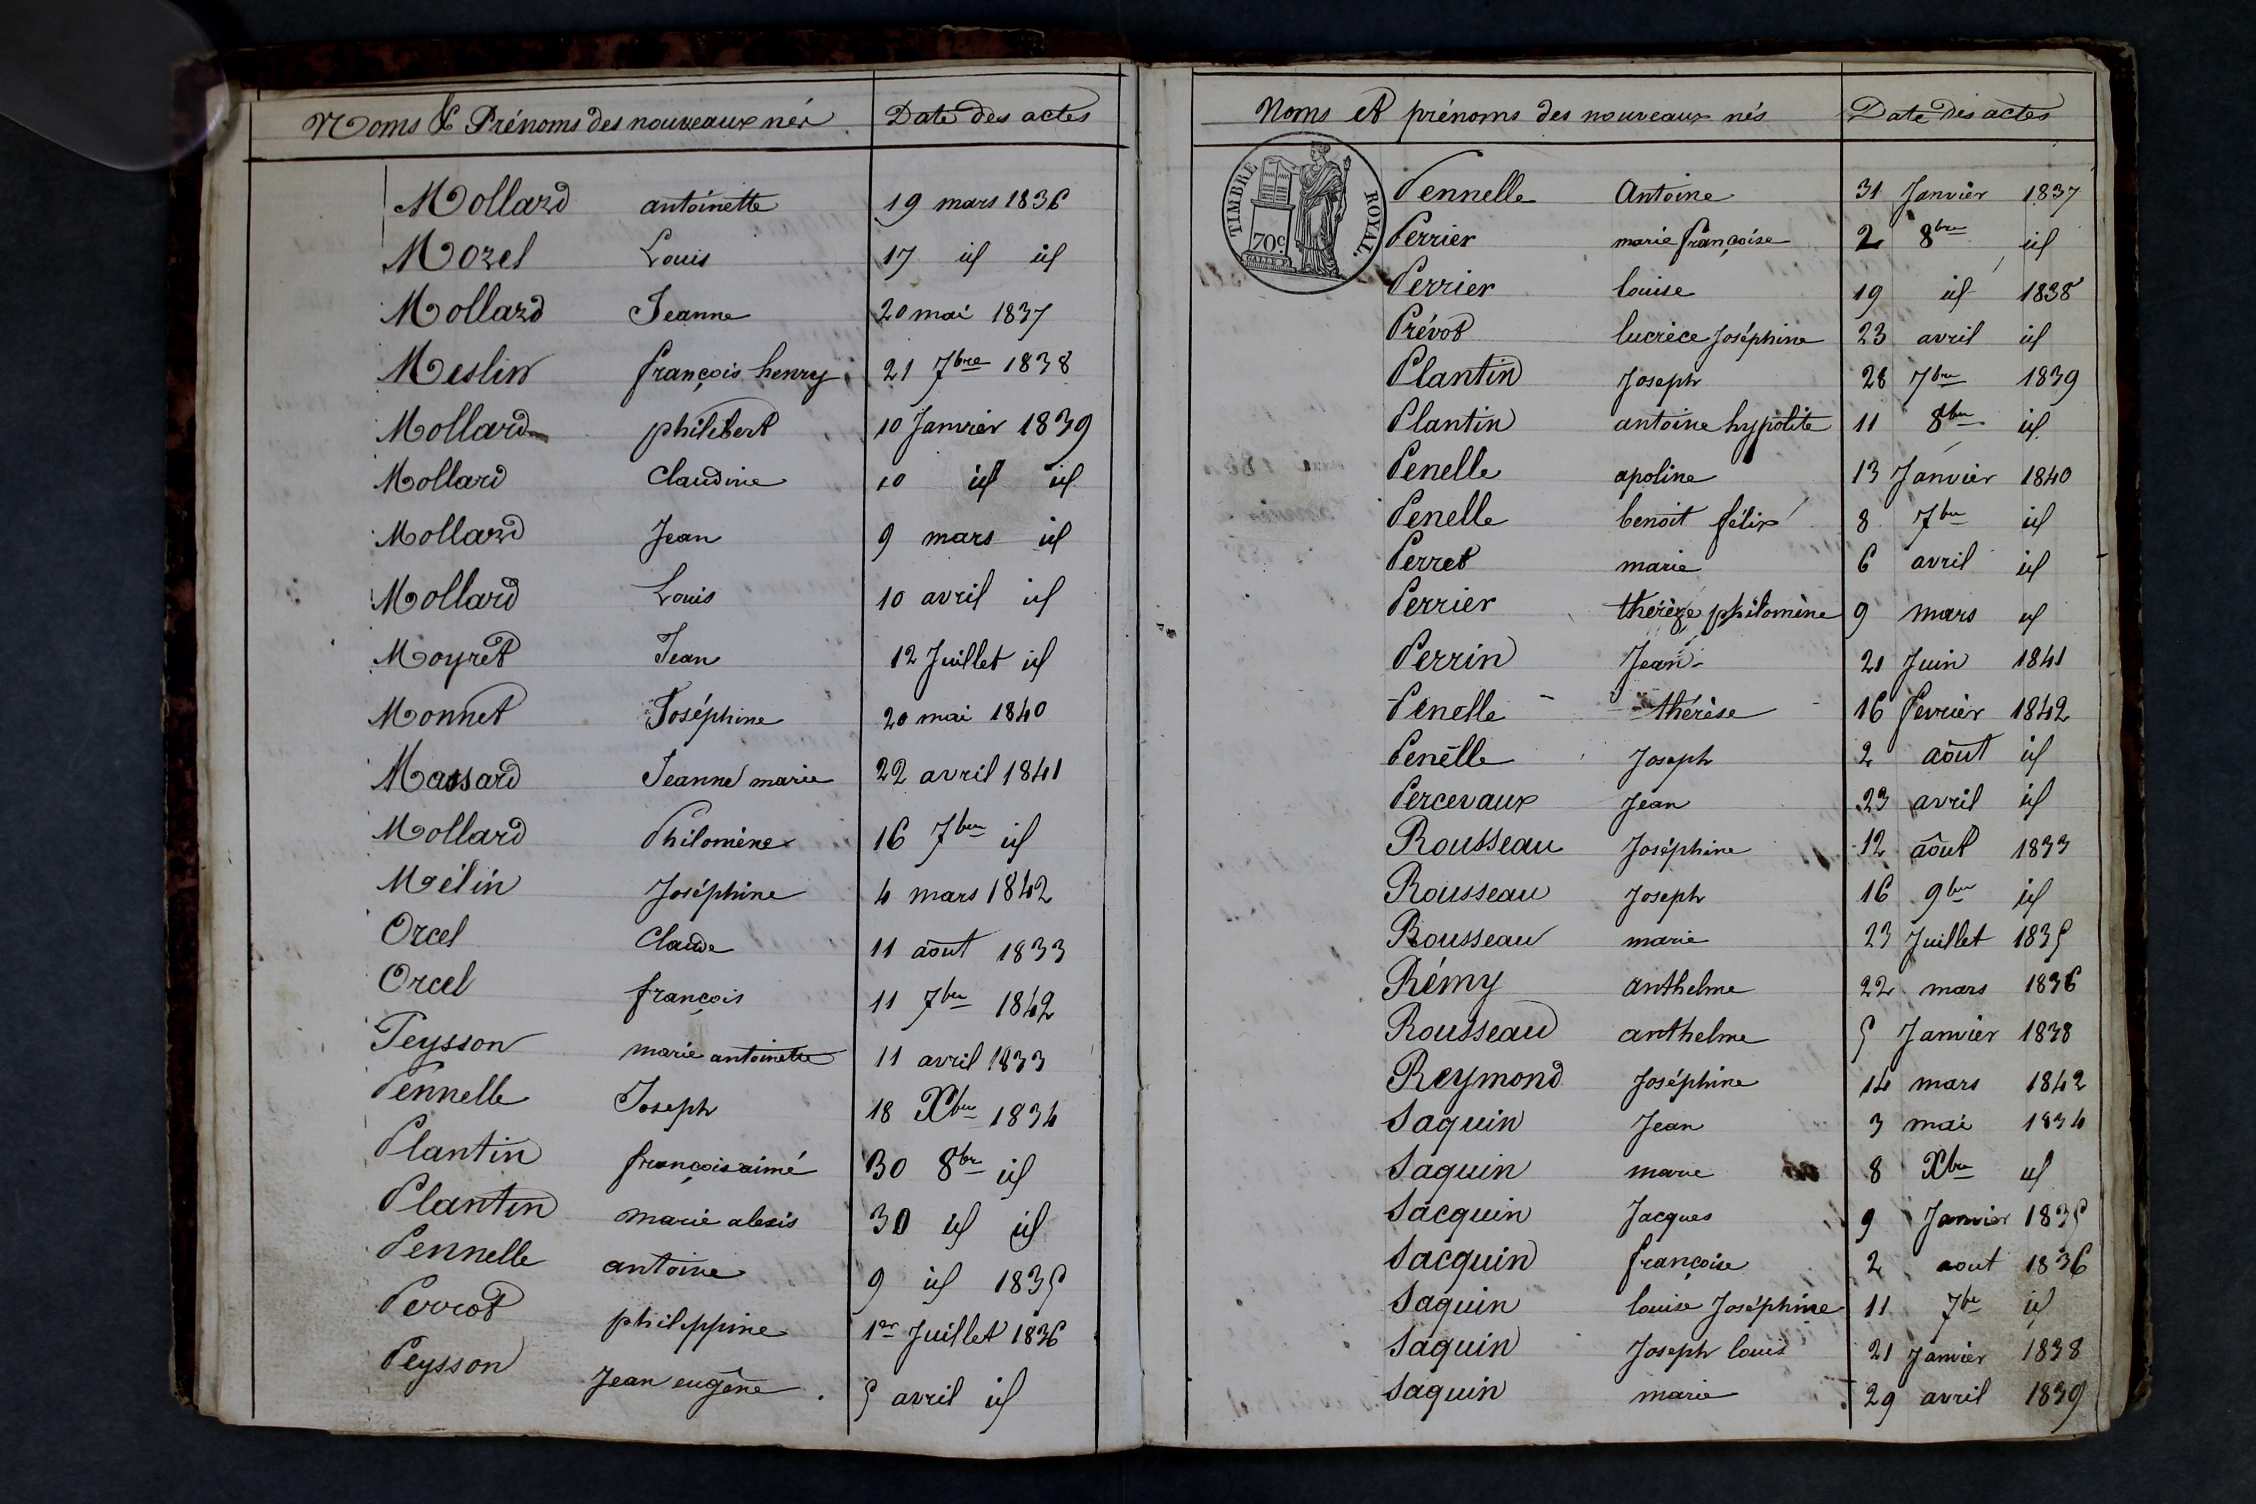 Noms & Prénoms des nouveaux nés Date des actes
Mollard antoinette 19 mars 1836
Morel Louis 17 id id
Mollard Jeanne 20 mai 1837
Meslin françois henry 21 7bre 1838
Mollard philibert 10 Janvier 1839
Mollard Claudine 10 id id
Mollard Jean 9 mars id
Mollard Louis 10 avril id
Moyret Jean 12 Juillet id
Monnet Joséphine 20 mai 1840
Massard Jeanne marie 22 avril 1841
Mollard Philomène 16 7bre id
Mélin Joséphine 4 mars 1842
Orcel Claude 11 aôut 1833
Orcel françois 11 7bre 1842
Peysson marie antoinette 11 avril 1833
Pennelle Joseph 18 Xbre 1834
Plantin françois aimé 30 8bre id
Plantin marie alexis 30 id id
Pennelle antoine 9 id 1835
Perrot philippine 1er Juillet 1836
Peysson Jean eugène 5 avril id
Noms et prénoms des nouveaux nés Date des actes
TIMBRE ROYAL.
70c
Pennelle Antoine 31 Janvier 1837
Perrier marie françoise 2 8bre id
Perrier louise 19 id 1838
Prévot lucrèce Joséphine 23 avril id
Plantin Joseph 28 7bre 1839
Plantin antoine hypolite 11 8bre id
Penelle apoline 13 Janvier 1840
Penelle benoit félix 8 7bre id
Perret marie 6 avril id
Perrier thérèze philomène 9 mars id
Perrin Jean 21 Juin 1841
Penelle thérèse 16 février 1842
Penelle Joseph 2 aôut id
Percevaux Jean 23 avril id
Rousseau Joséphine 12 aôut 1833
Rousseau Joseph 16 9bre id
Rousseau marie 23 Juillet 1835
Rémy anthelme 22 mars 1836
Rousseau anthelme 5 Janvier 1838
Reymond Joséphine 14 mars 1842
Saquin Jean 3 mai 1834
Saquin marie 8 Xbre id
Sacquin Jacques 9 Janvier 1835
Sacquin françoise 2 aout 1836
Saquin louise Joséphine 11 7bre id
Saquin Joseph louis 21 Janvier 1838
Saquin marie 29 avril 1839